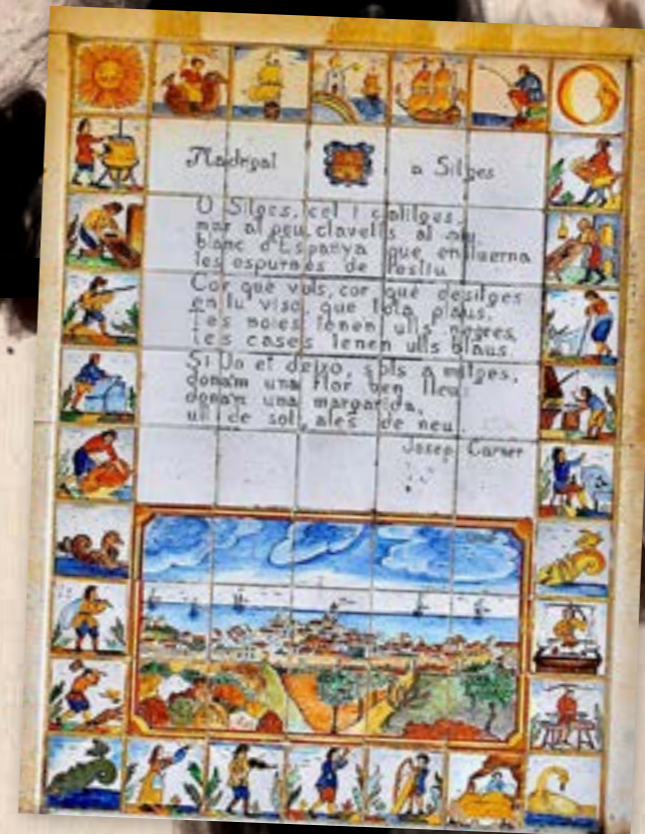 Madrigal a Sitges
O Sitges, cel i calitges,
mar al peu, clavells al niu,
blanc d'Espanya que enlluerna
les espurnes de l'estiu
Cor què vols, cor què desitges
en tu visc, que tota plaus.
Les noies tenen ulls negres,
les cases tenen ulls blaus.
Si Us et deixo, sols a mitges,
dona'm una flor ben lleu:
dona'm una margarida,
ull de sol, alès de neu.
Josep Carner